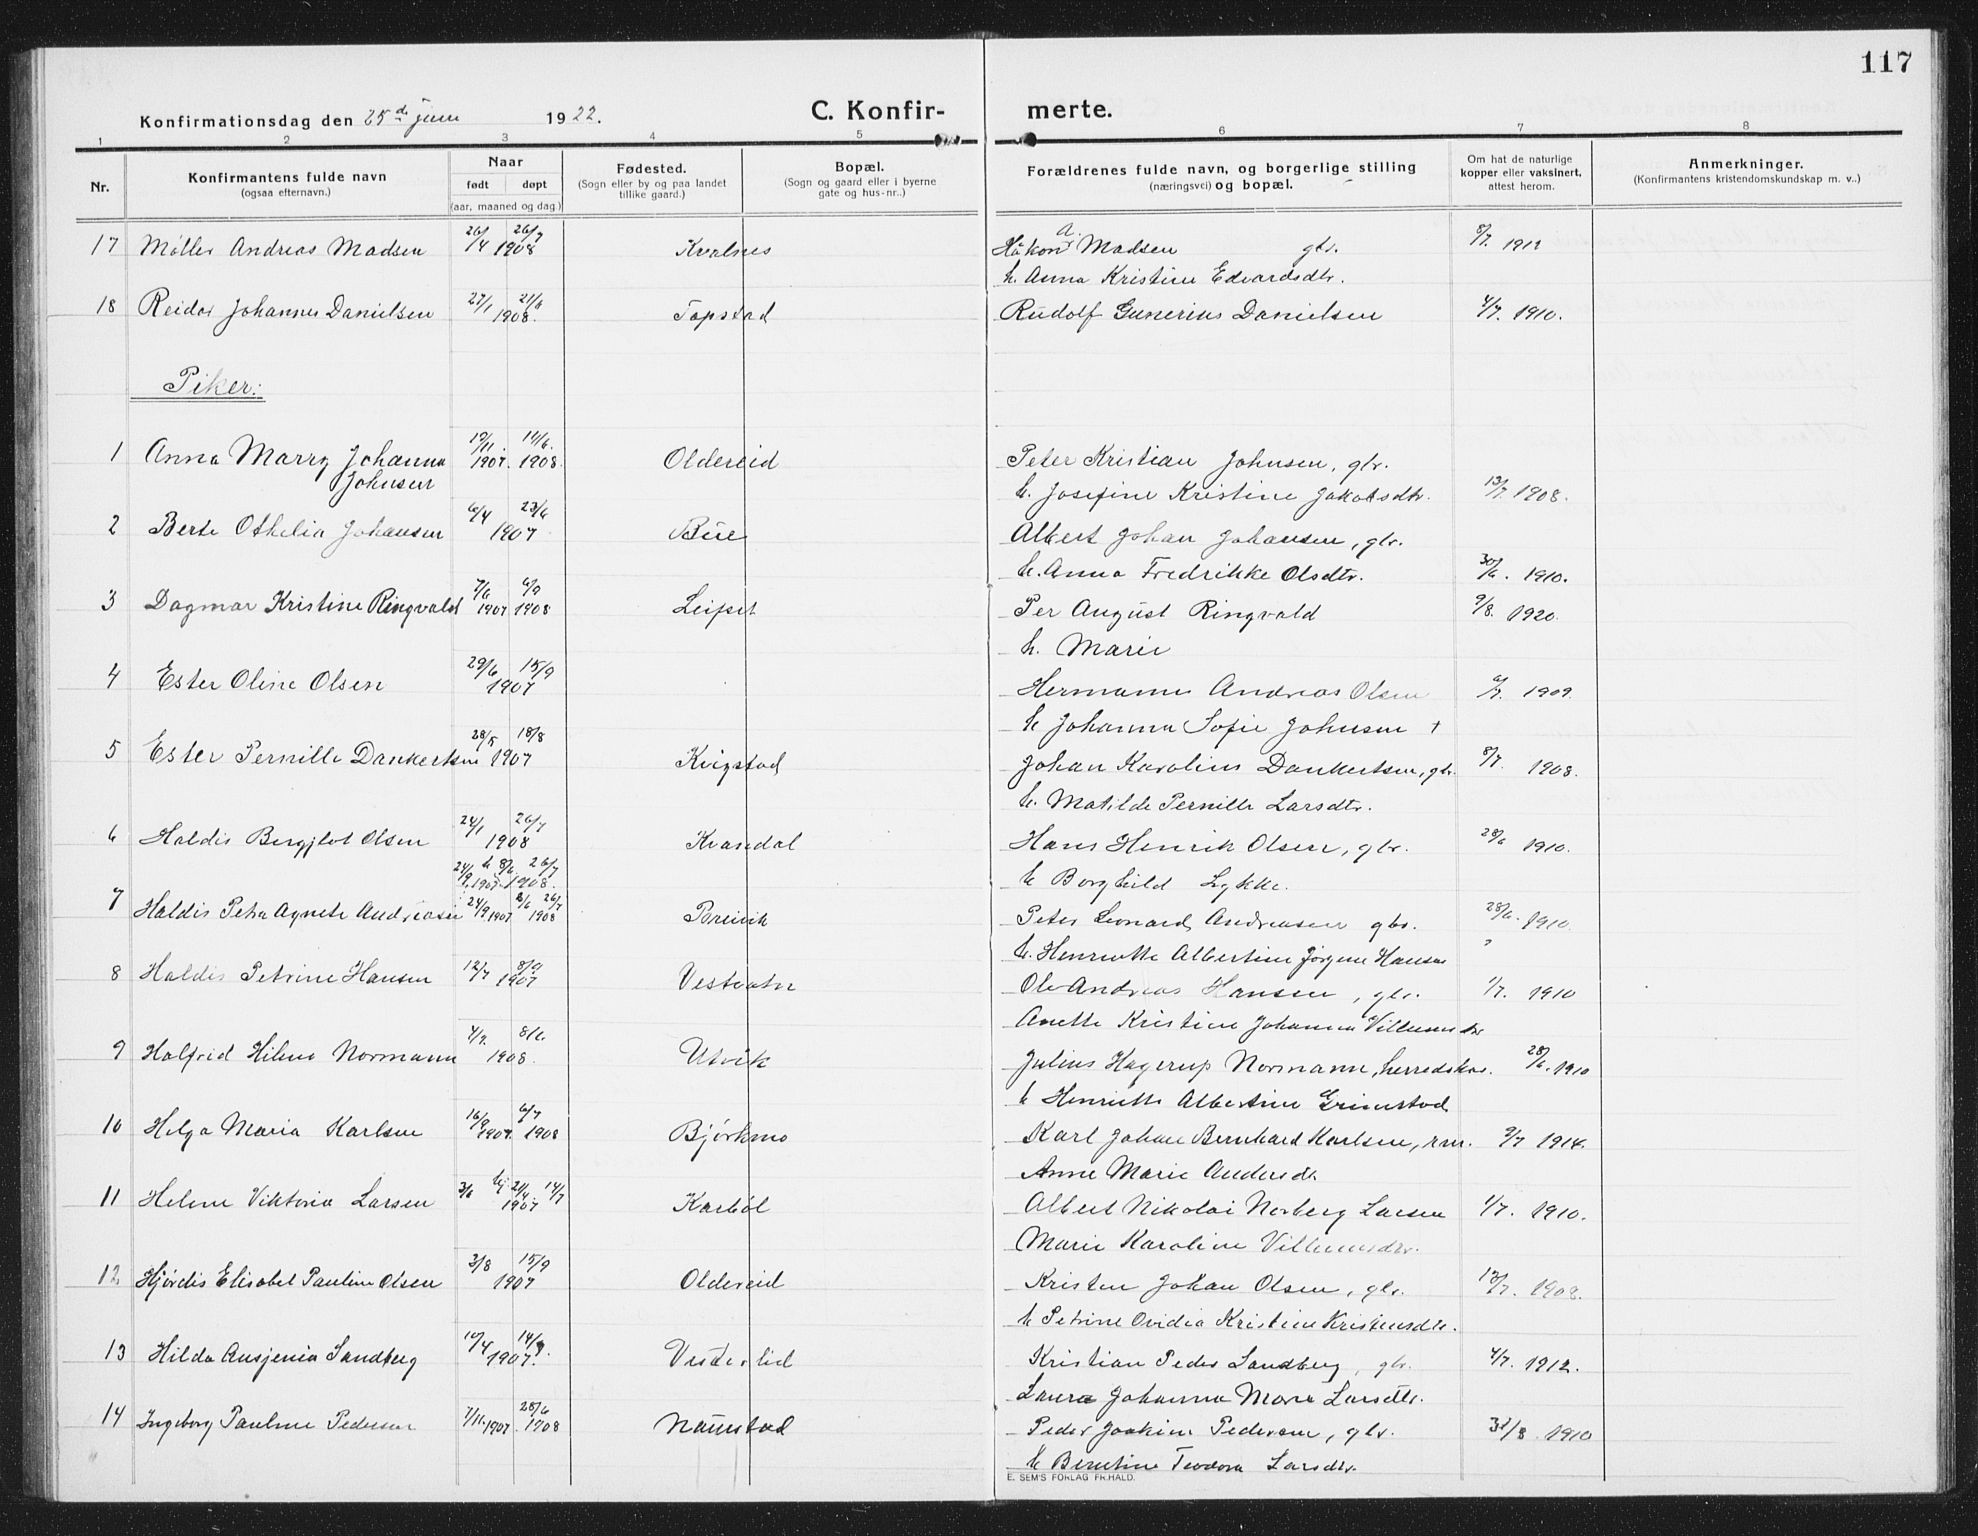 117
Konfirmationsdag den 25de juni 1922.
C. Konfir- merte.
1 2 3 4 5 6 7 8
Nr.
Konfirmantens fulde navn
(ogsaa efternavn.)
Naar
født døpt
(aar, maaned og dag.)
Fødested.
(Sogn eller by og paa landet
tillike gaard.)
Bopæl.
(Sogn og gaard eller i byerne
gate og hus-nr..)
Forældrenes fulde navn, og borgerlige stilling
(næringsvei) og bopæl.
Om hat de naturlige
kopper eller vaksinert,
attest herom.
Anmerkninger.
(Konfirmantens kristendomskundskap m. v..)
17 Møller Andreas Madsen 26/4 26/7 1908 Kvalnes Håkon A. Madsen gbr. 8/7 1912
h. Anna Kristine Edvardsdtr.
18 Reidar Johannes Danielsen 27/1 21/6 1908. Topstad Rudolf Gunerius Danielsen 4/7. 1910.
Piker:
1 Anna Marry Johanna 19/11. 1907. 14/6. 1908. Oldereid Peter Kristian Johnsen, gbr.
Johnsen h. Josefine Kristine Jakobsdtr. 13/7 1908.
2 Berte Othelia Johansen 6/4 23/6 1907 Bue Albert Johan Johansen, gbr.
h. Anna Fredrikke Olsdtr. 30/6. 1910.
3 Dagmar Kristine Ringvald 7/6 1907 6/9 1908 Per August Ringvald 9/8. 1920.
h. Marie
4 Ester Oline Olsen 29/6 15/9 1907 Andreas Olsen 1909.
h Johanna Sofie Johnsen +
5 Ester Pernille Dankertsen 28/5 18/8 1907 Kvigstad Johan Karolius Dankertsen, gbr. 8/7. 1908.
h. Matilde Pernille Larsdtr.
6 Haldis Bergjlot Olsen 24/1 26/7 1908 Kvasdal Hans Henrik Olsen, gbr. 28/6 1910.
24/9. 1907. h 8/6. 26/7 1908. h Borghild Lykke.
7 Haldis Petra Agnete Andreasen 24/9 1907. 8/6 26/7 1908 Peter Leonard Andreasen gbr. 28/6. 1910.
h. Henriette Albertine Jørgine Hansen
8 Haldis Petrine Hansen 12/7 8/9 1907 Vestvatn Ole Andreas Hansen, gbr. 1/7. 1910
Anette Kristine Johanna
9 Halfrid Hilma Normann 1908. Utvik Julius Hagerup Normann, 28/6. 1910
h Henriette Albertine Grimstad
10 Helga Maria Karlsen 16/9 1907. 6/7 1908 Bjørkmo Karl Johan Bernhard Karlsen, 9/7 1914.
Anne Marie
11 Helene Viktoria Larsen 3/6 hj 21/4. 14/7 1907 Karbøl Albert Nikolai Norberg Larsen 1/7. 1910.
Marie Karoline
12 Hjørdis Elisabet Pauline Olsen 3/8 15/9 1907 Oldereid Kristen Johan Olsen, gbr. 13/7. 1908.
h Petrine Ovidia Kristine Kristensdtr.
13 Hilda Ausjenia Sandberg 10/4 1907. Vesterlid Kristian Peder Sandberg, gbr. 4/7. 1912.
Laura Johanna Maria Larsdtr.
14 Ingeborg Pauline Pedersen 7/11. 1907. 28/6 1908 Naurstad Peder Joakim Pedersen, gbr. 31/8 1910
h Berntine Teodora Larsdtr.
E. SEM'S FORLAG FR.HALD.